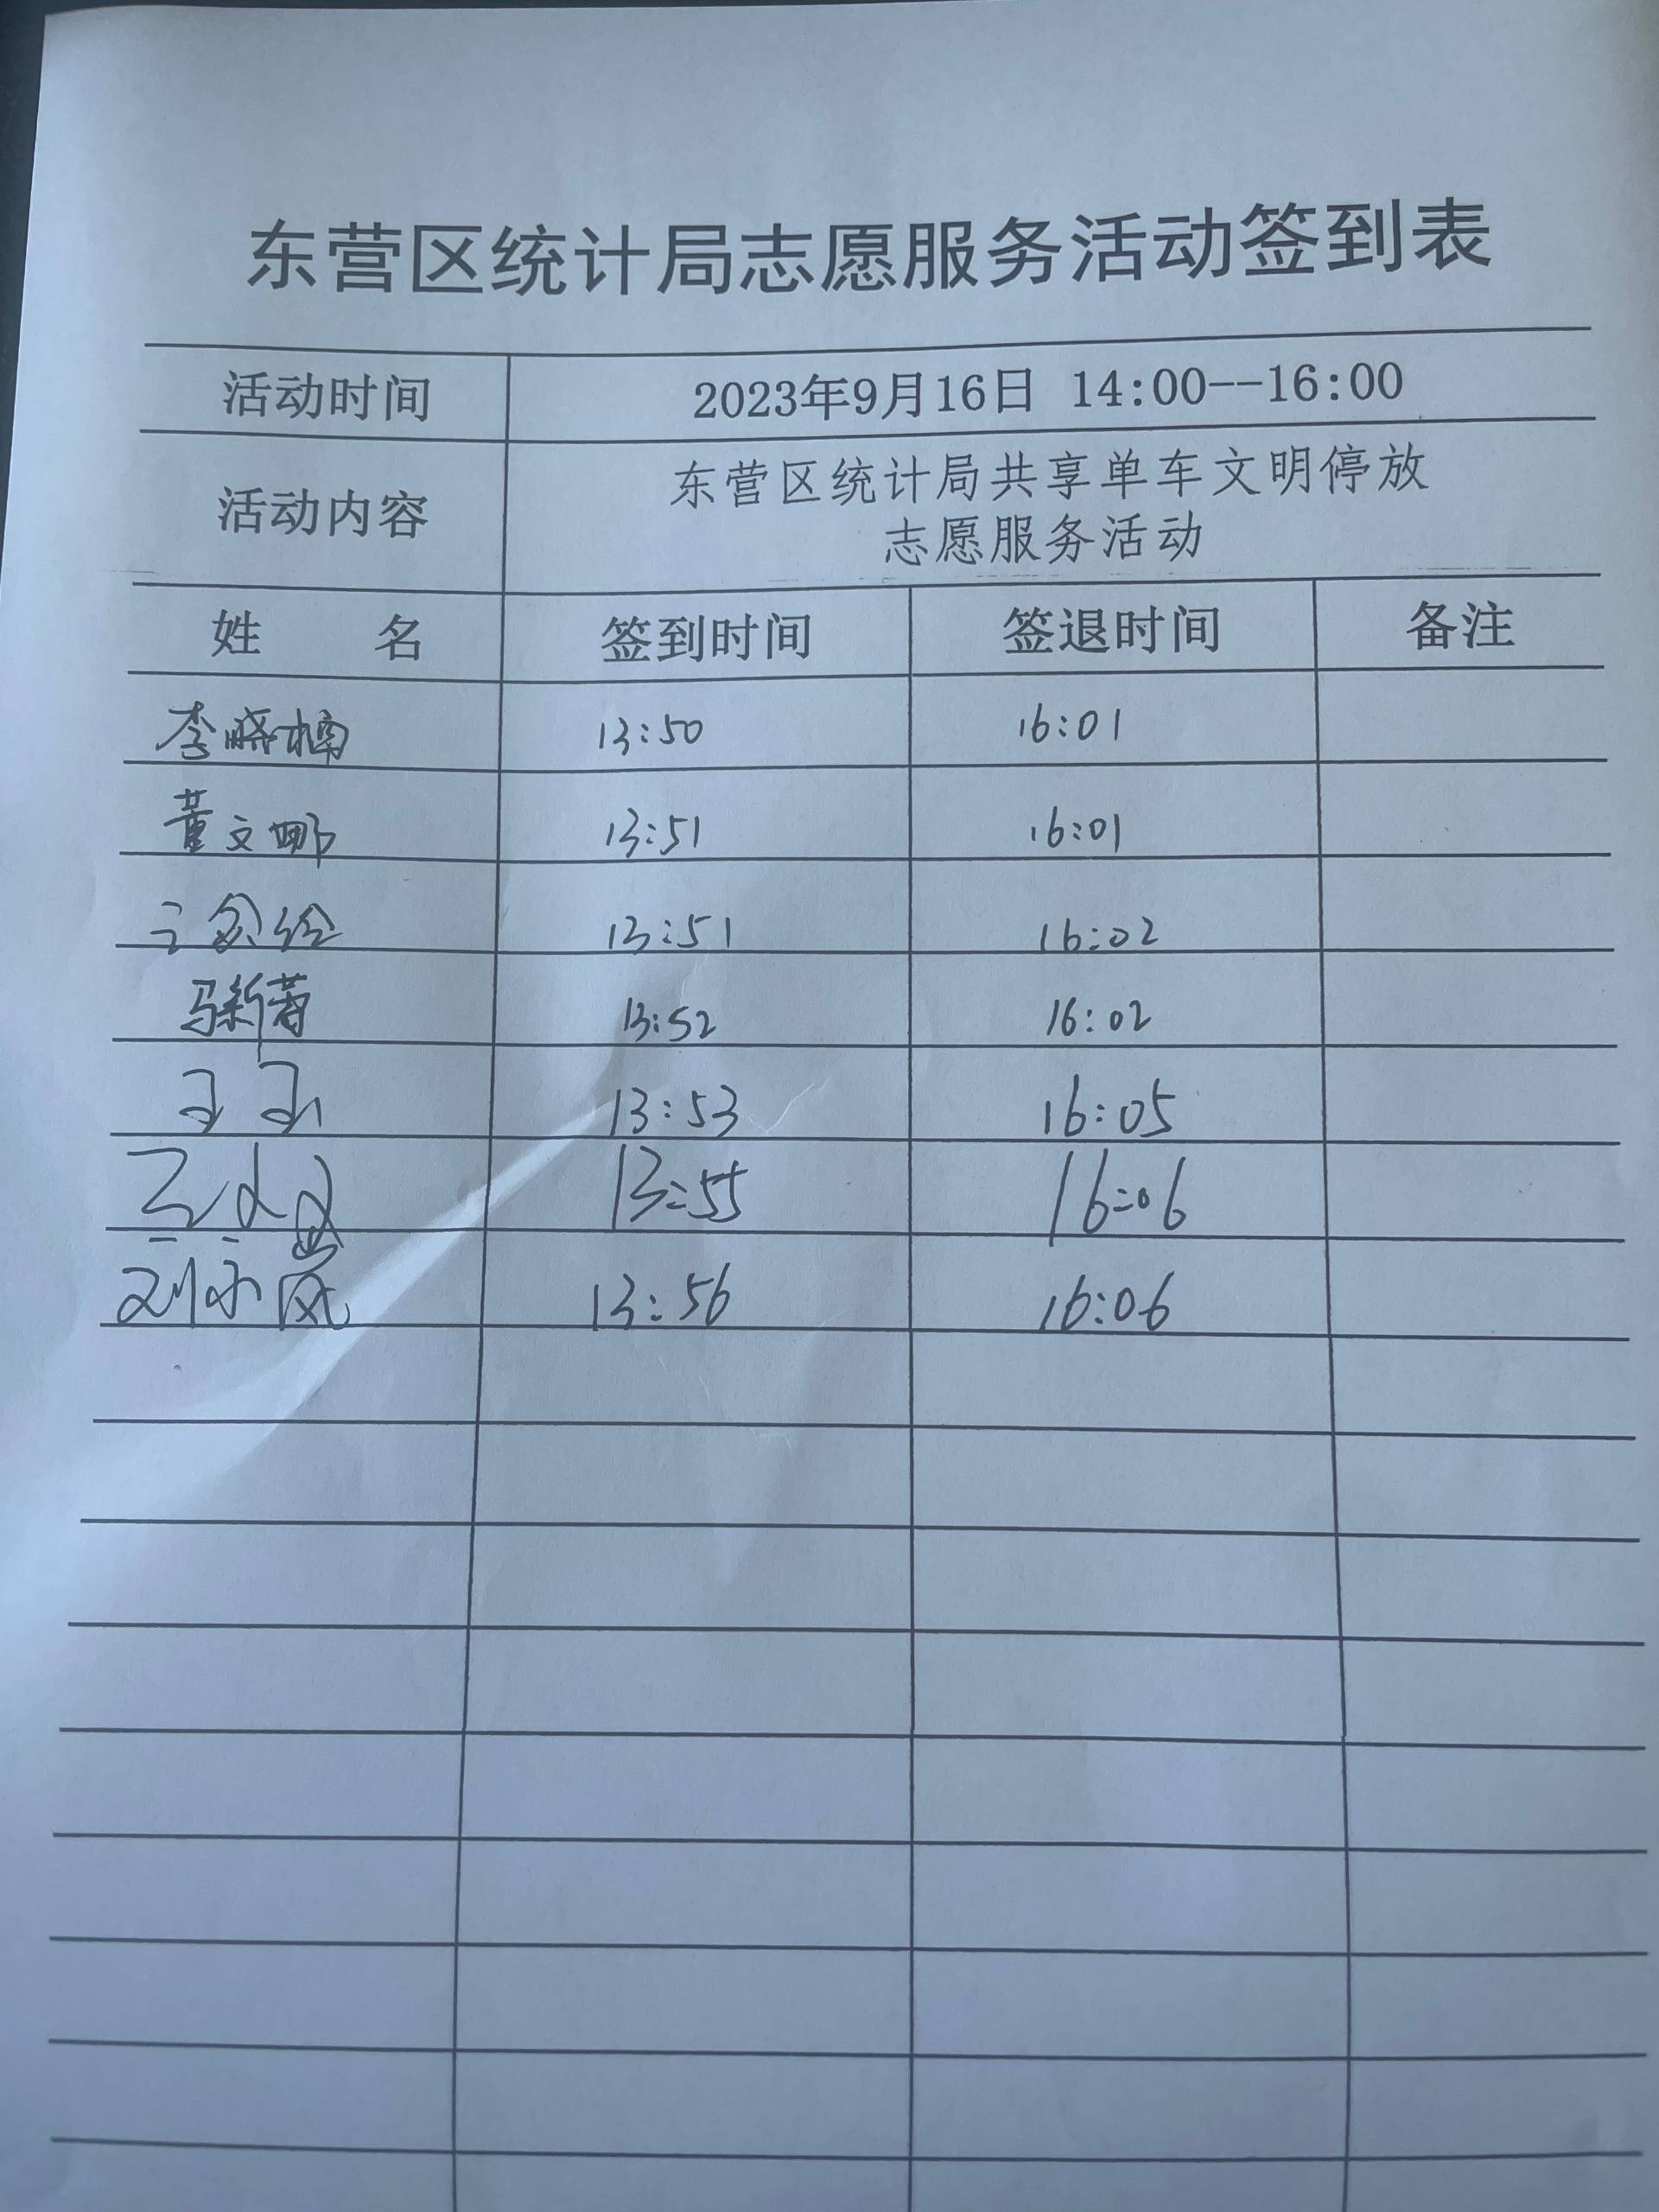 东营区统计局志愿服务活动签到表
活动时间 2023年9月16日 14:00--16:00
活动内容 东营区统计局共享单车文明停放
志愿服务活动
姓 名 签到时间 签退时间 备注
李晓楠 13:50 16:01
董文娜 13:51 16:01
13:51 16:02
马新蕾 13:52 16:02
王 13:53 16:05
13:55 16:06
刘小岚 13:56 16:06